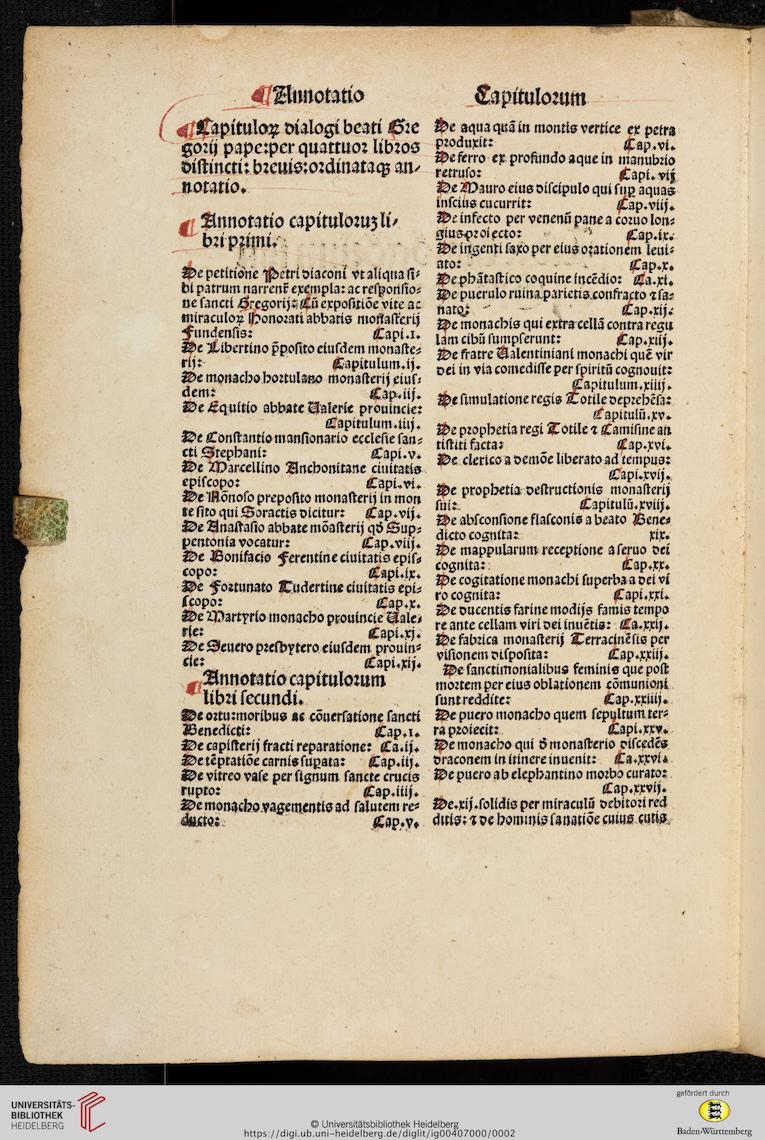 ¶ Annotatio Capitulorum
¶ Capituloꝝ dialogi beati Gre
gorij pape:per quattuor libros
distincti: breuis:ordinataqꝫ an-
notatio.
¶ Annotatio capituloruꝫ li-
bri primi.
De petitione Petri diaconi vt aliqua si-
bi patrum narrent᷑ exempla: ac responsio-
ne sancti Gregorij: Cū expositiōe vite ac
miraculoꝝ Honorati abbatis monasterij
Fundensis: Capi.i.
De Libertino p̄posito eiusdem monaste-
rij: Capitulum.ij.
De monacho hortulano monasterij eius-
dem: Cap.iij.
De Equitio abbate Ualerie prouincie:
Capitulum.iiij.
De Constantio mansionario ecclesie san-
cti Stephani: Capi.v.
De Marcellino Anchonitane ciuitatis
episcopo: Capi.vi.
De Nōnoso preposito monasterij in mon
te sito qui Soractis dicitur: Cap.vij.
De Anastasio abbate mōasterij qď Sup-
pentonia vocatur: Cap.viij.
De Bonifacio Ferentine ciuitatis epis-
copo: Capi.ix.
De Fortunato Tudertine ciuitatis epi-
scopo: Cap.x.
De Martyrio monacho prouincie Vale-
rie: Capi.xj.
De Seuero presbytero eiusdem prouin-
cie: Capi.xij.
¶ Annotatio capitulorum
libri secundi.
De ortu:moribus ac cōuersatione sancti
Benedicti: Cap.i.
De capisterij fracti reparatione: Ca.ij.
De tēptatiōe carnis suꝑata: Cap.iij.
De vitreo vase per signum sancte crucis
rupto: Cap.iiij.
De monacho vagementis ad salutem re-
ducto: Cap.v.
De aqua quā in montis vertice ex petra
produxit: Cap.vi.
De ferro ex profundo aque in manubrio
retruso: Capi.vij
De Mauro eius discipulo qui suꝑ aquas
inscius cucurrit: Cap.viij.
De infecto per venenū pane a coruo lon-
gius proiecto: Cap.ix.
De ingenti saxo per eius orationem leui-
ato: Cap.x.
De phātastico coquine incēdio: Ca.xi.
De puerulo ruina parietis confracto ⁊ sa-
nato: Cap.xij.
De monachis qui extra cellā contra regu
lam cibū sumpserunt: Cap.xiij.
De fratre Ualentiniani monachi quē vir
dei in via comedisse per spiritū cognouit:
Capitulum.xiiij.
De simulatione regis Totile deprehēsa:
Capitulū.xv.
De prophetia regi Totile ⁊ Camisine an
tistiti facta: Cap.xvi.
De clerico a demōe liberato ad tempus:
Capi.xvij.
De prophetia destructionis monasterij
sui: Capitulū.xviij.
De absconsione flasconis a beato Bene-
dicto cognita: xix.
De mappularum receptione a seruo dei
cognita: Cap.xx.
De cogitatione monachi superba a dei vi
ro cognita: Capi.xxi.
De ducentis farine modijs famis tempo
re ante cellam viri dei inuētis: Ca.xxij.
De fabrica monasterij Terracinēsis per
visionem disposita: Cap.xxiij.
De sanctimonialibus feminis que post
mortem per eius oblationem cōmunioni
sunt reddite: Cap.xxiiij.
De puero monacho quem sepultum ter-
ra proiecit: Capi.xxv.
De monacho qui d̄ monasterio discedēs
draconem in itinere inuenit: Ca.xxvi.
De puero ab elephantino morbo curato:
Cap.xxvij.
De.xij.solidis per miraculū debitori red
ditis: ⁊ de hominis sanatiōe cuius cutis
UNIVERSITÄTS-
BIBLIOTHEK
HEIDELBERG
© Universitätsbibliothek Heidelberg
https://digi.ub.uni-heidelberg.de/diglit/ig00407000/0002
gefördert durch
Baden-Württemberg